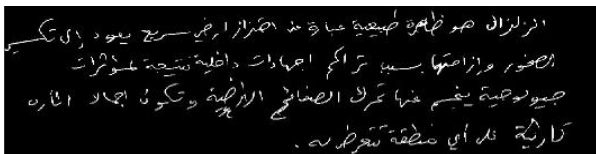 الزلزال هو ظاهرة طبيعية عبارة عن اهتزاز ارضي سريع يعود إلى تكسير
الصخور وإزاحتها بسبب تراكم اجهادات داخلية نتيجة لمؤثرات
جيولوجية ينجم عنها تحرك الصفائح الارضية وتكون اجمالا اثاره
كارثية على أي منطقة تتعرض له.